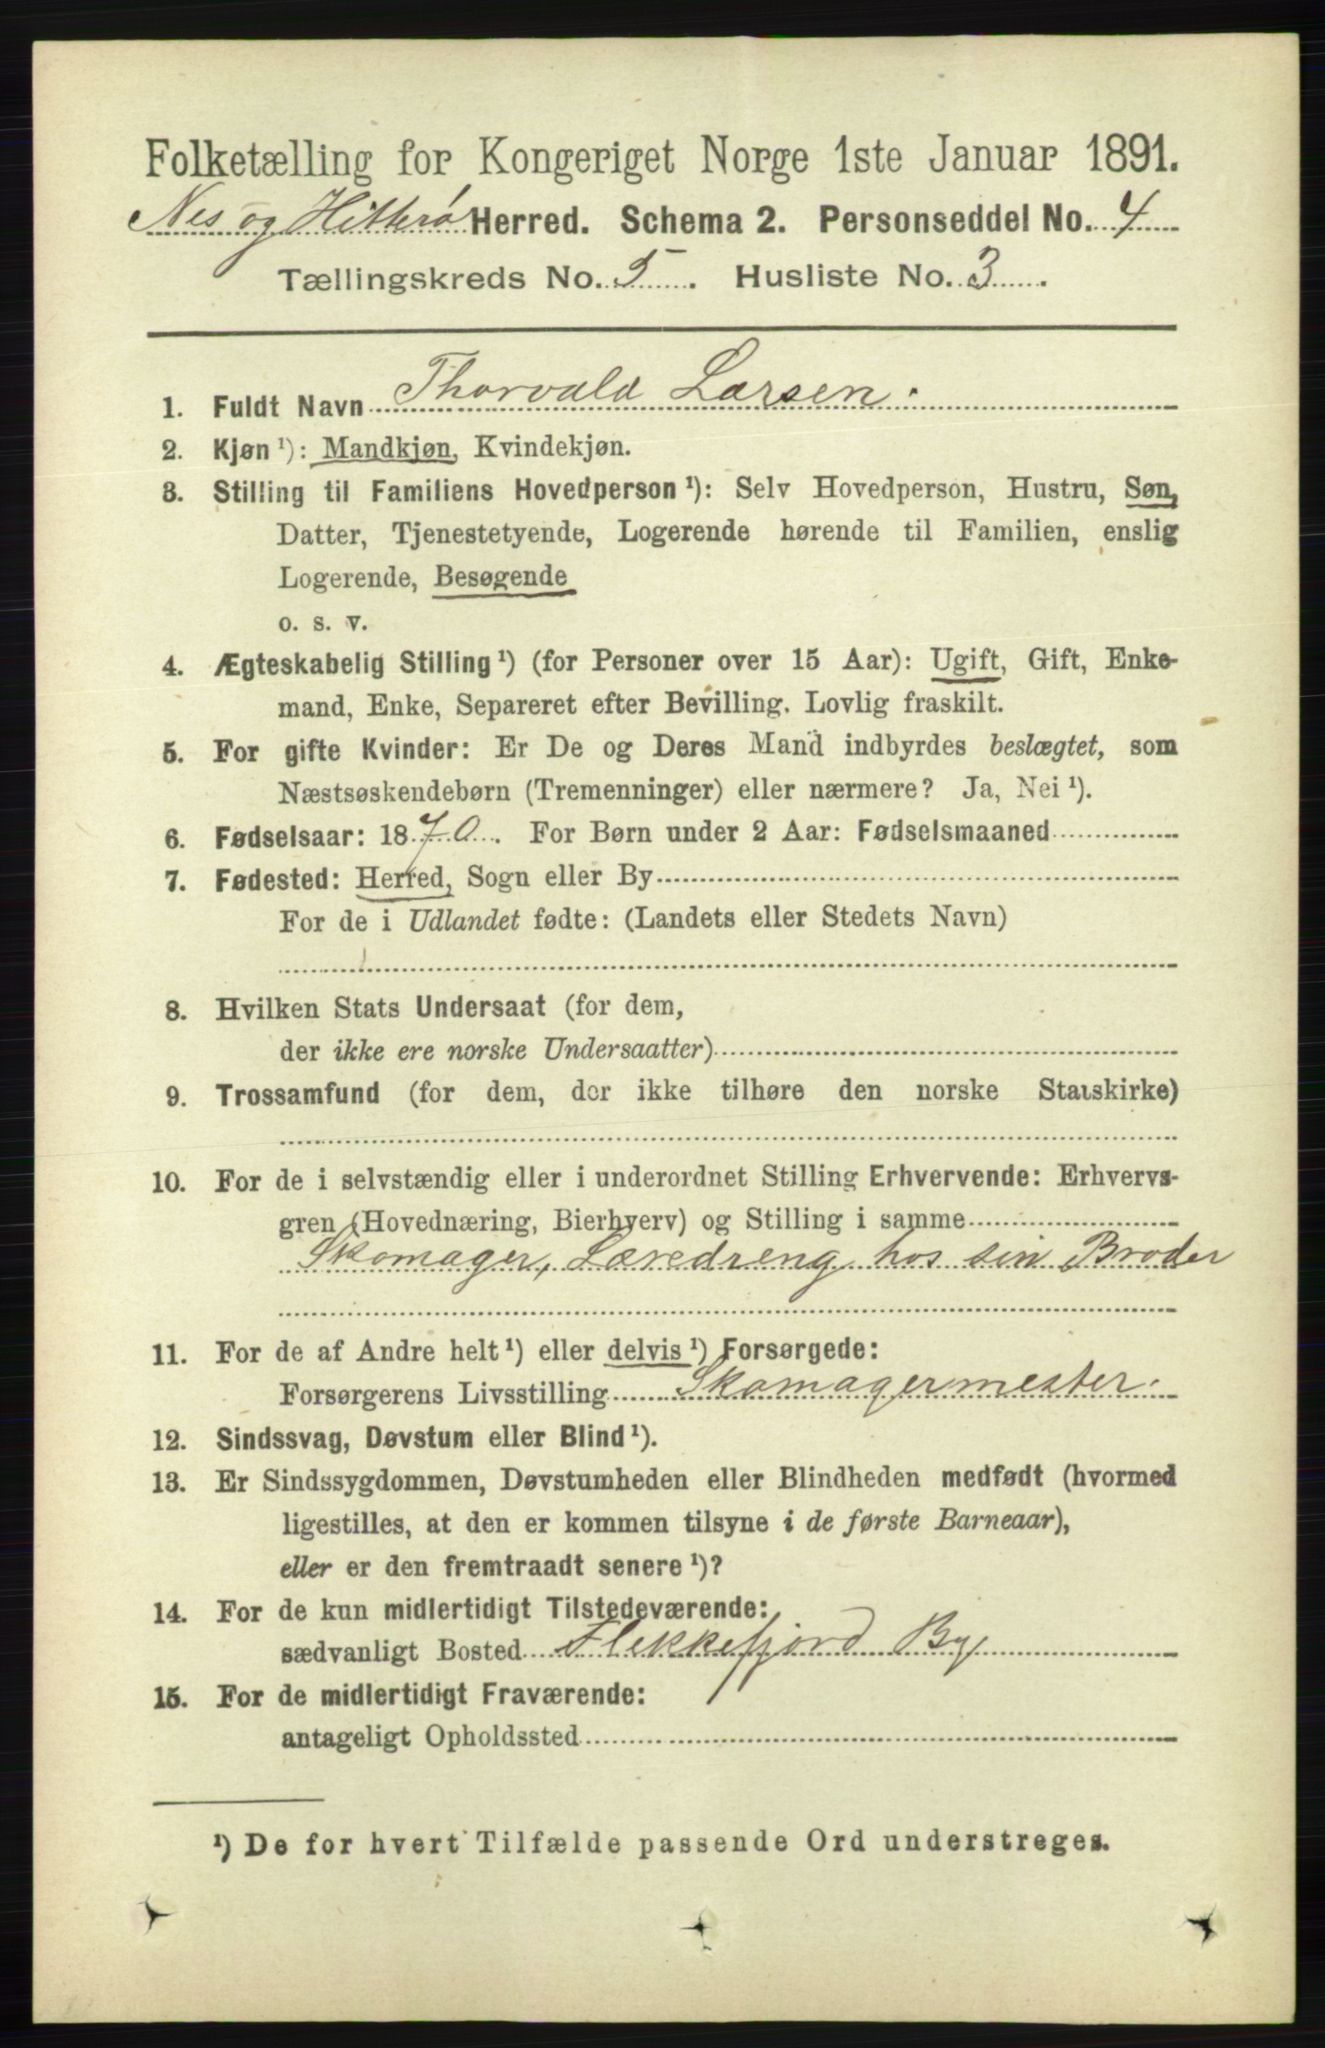 Folketælling for Kongeriget Norge 1ste Januar 1891.
Nes og Hitterø Herred. Schema 2. Personseddel No. 4
Tællingskreds No. 5. Husliste No. 3.
1. Fuldt Navn Thorvald Larsen.
2. Kjøn ¹): Mandkjøn, Kvindekjøn.
3. Stilling til Familiens Hovedperson ¹): Selv Hovedperson, Hustru, Søn,
Datter, Tjenestetyende, Logerende hørende til Familien, enslig
Logerende, Besøgende
o. s. v.
4. Ægteskabelig Stilling ¹) (for Personer over 15 Aar): Ugift, Gift, Enke-
mand, Enke, Separeret efter Bevilling. Lovlig fraskilt.
5. For gifte Kvinder: Er De og Deres Mand indbyrdes beslægtet, som
Næstsøskendebørn (Tremenninger) eller nærmere? Ja, Nei ¹).
6. Fødselsaar: 1870. For Børn under 2 Aar: Fødselsmaaned
7. Fødested: Herred, Sogn eller By
For de i Udlandet fødte: (Landets eller Stedets Navn)
8. Hvilken Stats Undersaat (for dem,
der ikke ere norske Undersaatter)
9. Trossamfund (for dem, der ikke tilhøre den norske Statskirke)
10. For de i selvstændig eller i underordnet Stilling Erhvervende: Erhvervs-
gren (Hovednæring, Bierhverv) og Stilling i samme
Skomager, Læredreng hos sin Broder
11. For de af Andre helt ¹) eller delvis ¹) Forsørgede:
Forsørgerens Livsstilling Skomagermester.
12. Sindssvag, Døvstum eller Blind ¹).
13. Er Sindssygdommen, Døvstumheden eller Blindheden medfødt (hvormed
ligestilles, at den er kommen tilsyne i de første Barneaar),
eller er den fremtraadt senere ¹)?
14. For de kun midlertidigt Tilstedeværende:
sædvanligt Bosted Flekkefjord By
15. For de midlertidigt Fraværende:
antageligt Opholdssted
¹) De for hvert Tilfælde passende Ord understreges.